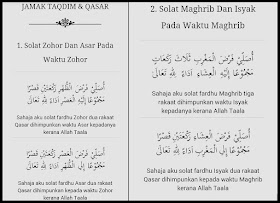 JAMAK TAQDIM & QASAR
1. Solat Zohor Dan Asar Pada
Waktu Zohor
أُصَلِّيْ فَرْضَ الظُّهْرِ رَكْعَتَيْنِ قَصْرًا
مَجْمُوْعًا إِلَيْهِ الْعَصْرُ أَدَاءً لِلّٰهِ تَعَالَى
Sahaja aku solat fardhu Zohor dua rakaat
Qasar dihimpunkan waktu Asar kepadanya
kerana Allah Taala
أُصَلِّيْ فَرْضَ الْعَصْرِ رَكْعَتَيْنِ قَصْرًا
مَجْمُوْعًا إِلَى الظُّهْرِ أَدَاءً لِلّٰهِ تَعَالَى
Sahaja aku solat fardhu Asar dua rakaat
Qasar dihimpunkan kepada waktu Zohor
kerana Allah Taala
2. Solat Maghrib Dan Isyak
Pada Waktu Maghrib
أُصَلِّيْ فَرْضَ الْمَغْرِبِ ثَلَاثَ رَكَعَاتٍ
مَجْمُوْعًا إِلَيْهِ الْعِشَاءُ أَدَاءً لِلّٰهِ تَعَالَى
Sahaja aku solat fardhu Maghrib tiga
rakaat dihimpunkan waktu Isyak
kepadanya kerana Allah Taala
أُصَلِّيْ فَرْضَ الْعِشَاءِ رَكْعَتَيْنِ قَصْرًا
مَجْمُوْعًا إِلَى الْمَغْرِبِ أَدَاءً لِلّٰهِ تَعَالَى
Sahaja aku solat fardhu Isyak dua rakaat
Qasar dihimpunkan kepada waktu Maghrib
kerana Allah Taala